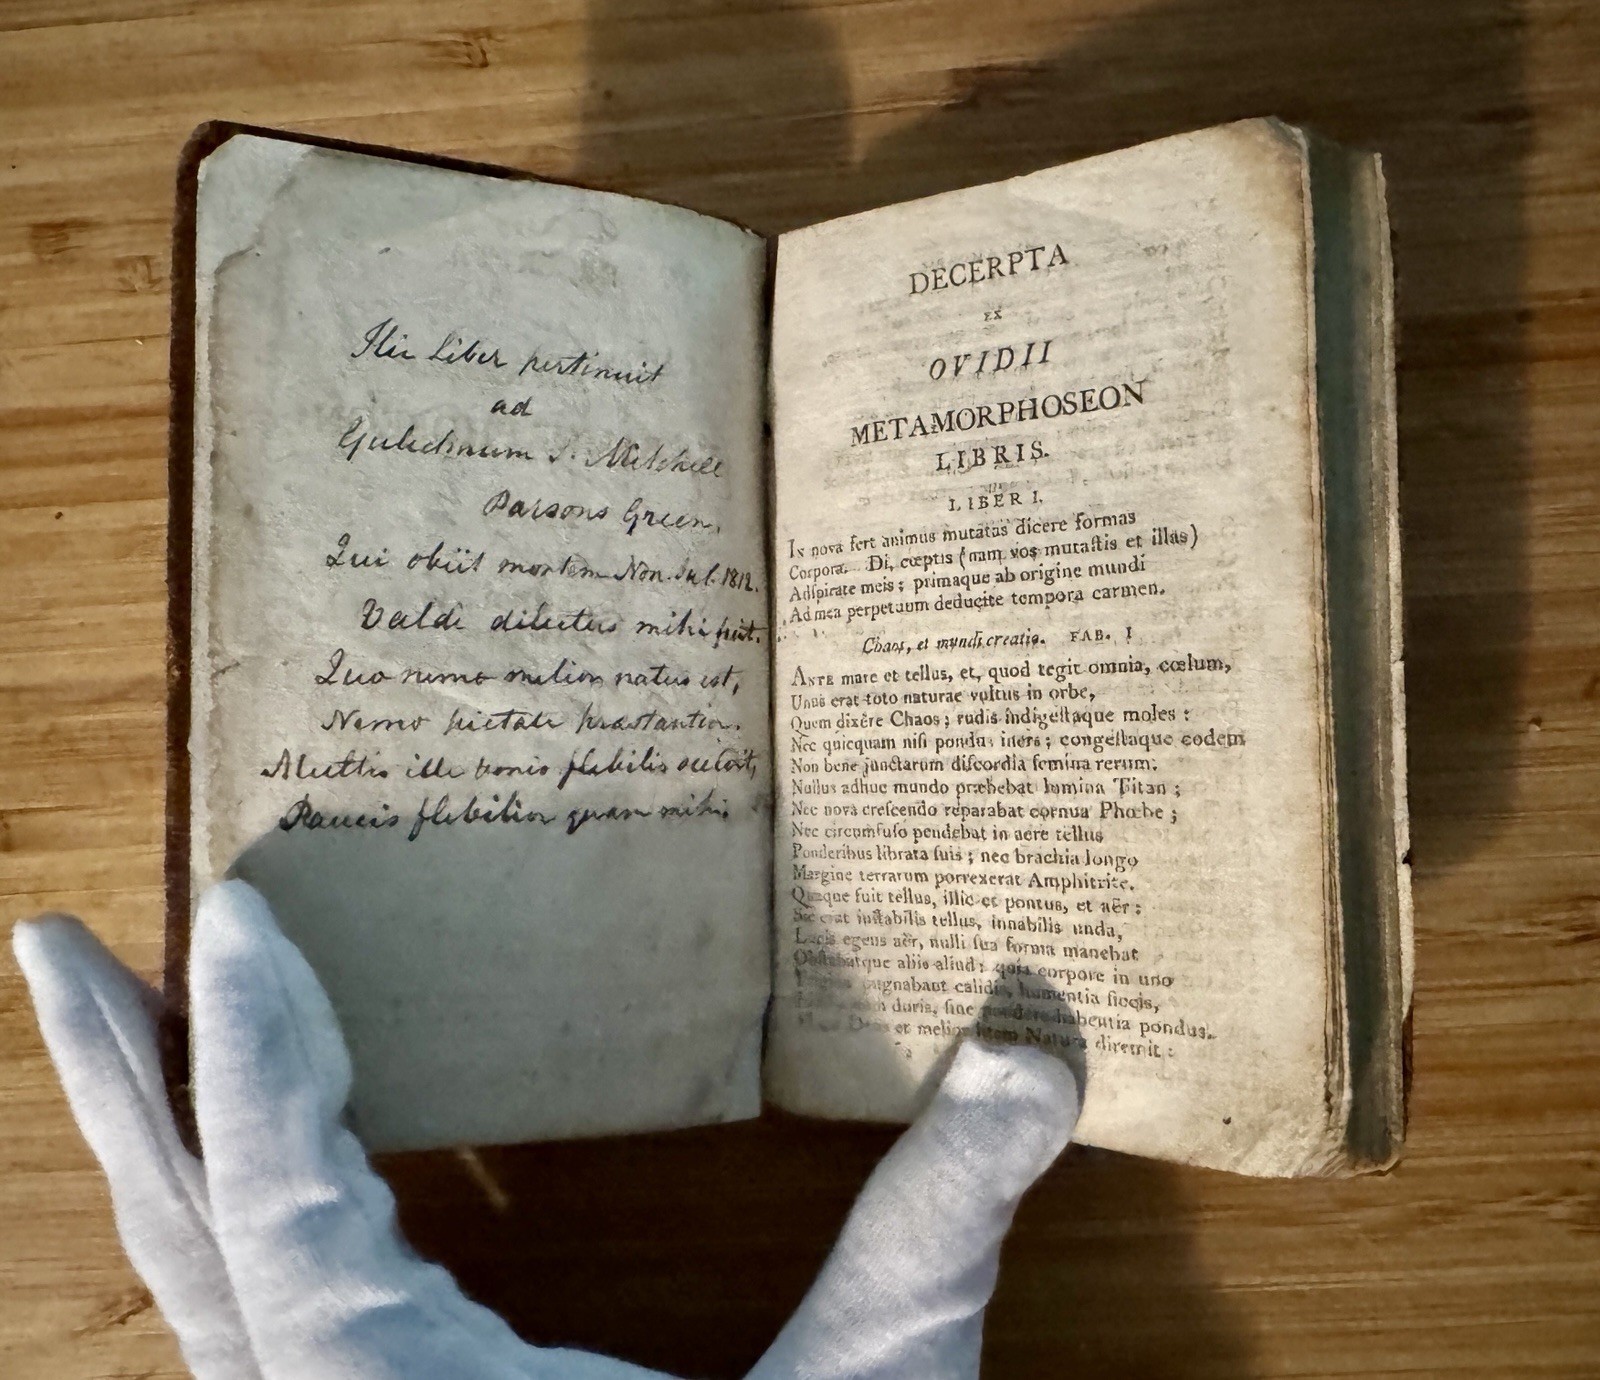 Hic Liber pertinuit
ad
Gulielmum S. Mitchell
Parsons Green.
Qui obiit mortem Non. Jul. 1812.
Valdè dilectus mihi fuit.
Quo nemo melior natus est,
Nemo pietate præstantior.
Multis ille bonis flebilis occidit,
Paucis flebilior quam mihi.
DECERPTA
EX
OVIDII
METAMORPHOSEON
LIBRIS.
LIBER I.
IN nova fert animus mutatas dicere formas
Corpora. Di, cœptis (nam vos mutaſtis et illas)
Adſpirate meis; primaque ab origine mundi
Ad mea perpetuum deducite tempora carmen.
Chaos, et mundi creatio. FAB. I
ANTE mare et tellus, et, quod tegit omnia, cœlum,
Unus erat toto naturae vultus in orbe,
Quem dixêre Chaos; rudis indigeſtaque moles:
Nec quicquam niſi pondus iners; congeſtaque eodem
Non bene junctarum diſcordia ſemina rerum.
Nullus adhuc mundo præbebat lumina Titan;
Nec nova creſcendo reparabat cornua Phœbe;
Nec circumfuſo pendebat in aere tellus
Ponderibus librata ſuis; nec brachia longo
Margine terrarum porrexerat Amphitrite.
Quaque fuit tellus, illic et pontus, et aër:
Sic erat inſtabilis tellus, innabilis unda,
Lucis egens aër, nulli ſua forma manebat
Obſtabatque aliis aliud: quia corpore in uno
pugnabant calidis, humentia ſiccis,
duris, ſine pondere habentia pondus.
et melior litem Natura diremit: